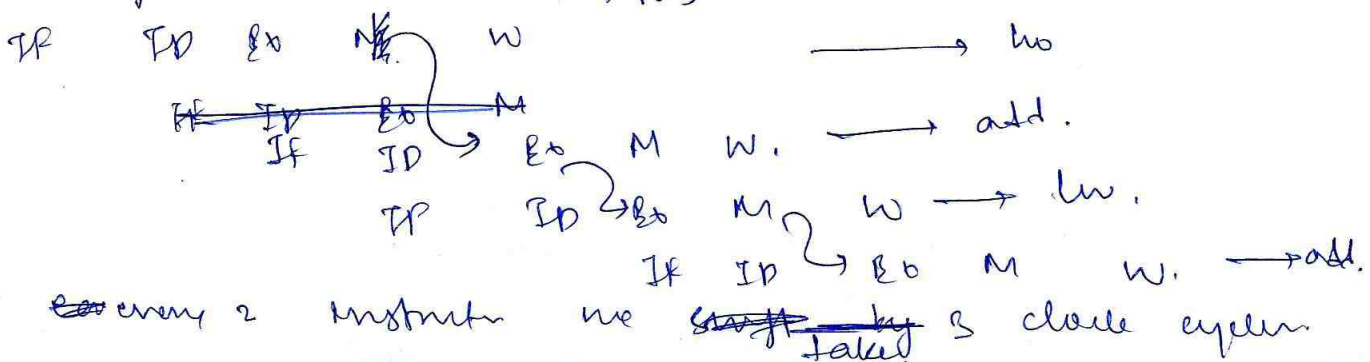 IF ID Ex M W → lw
IF ID Ex M
IF ID Ex M W. → add.
IF ID Ex M W → lw.
IF ID Ex M W. → add.
every 2 instructn we takes 3 clock cycles